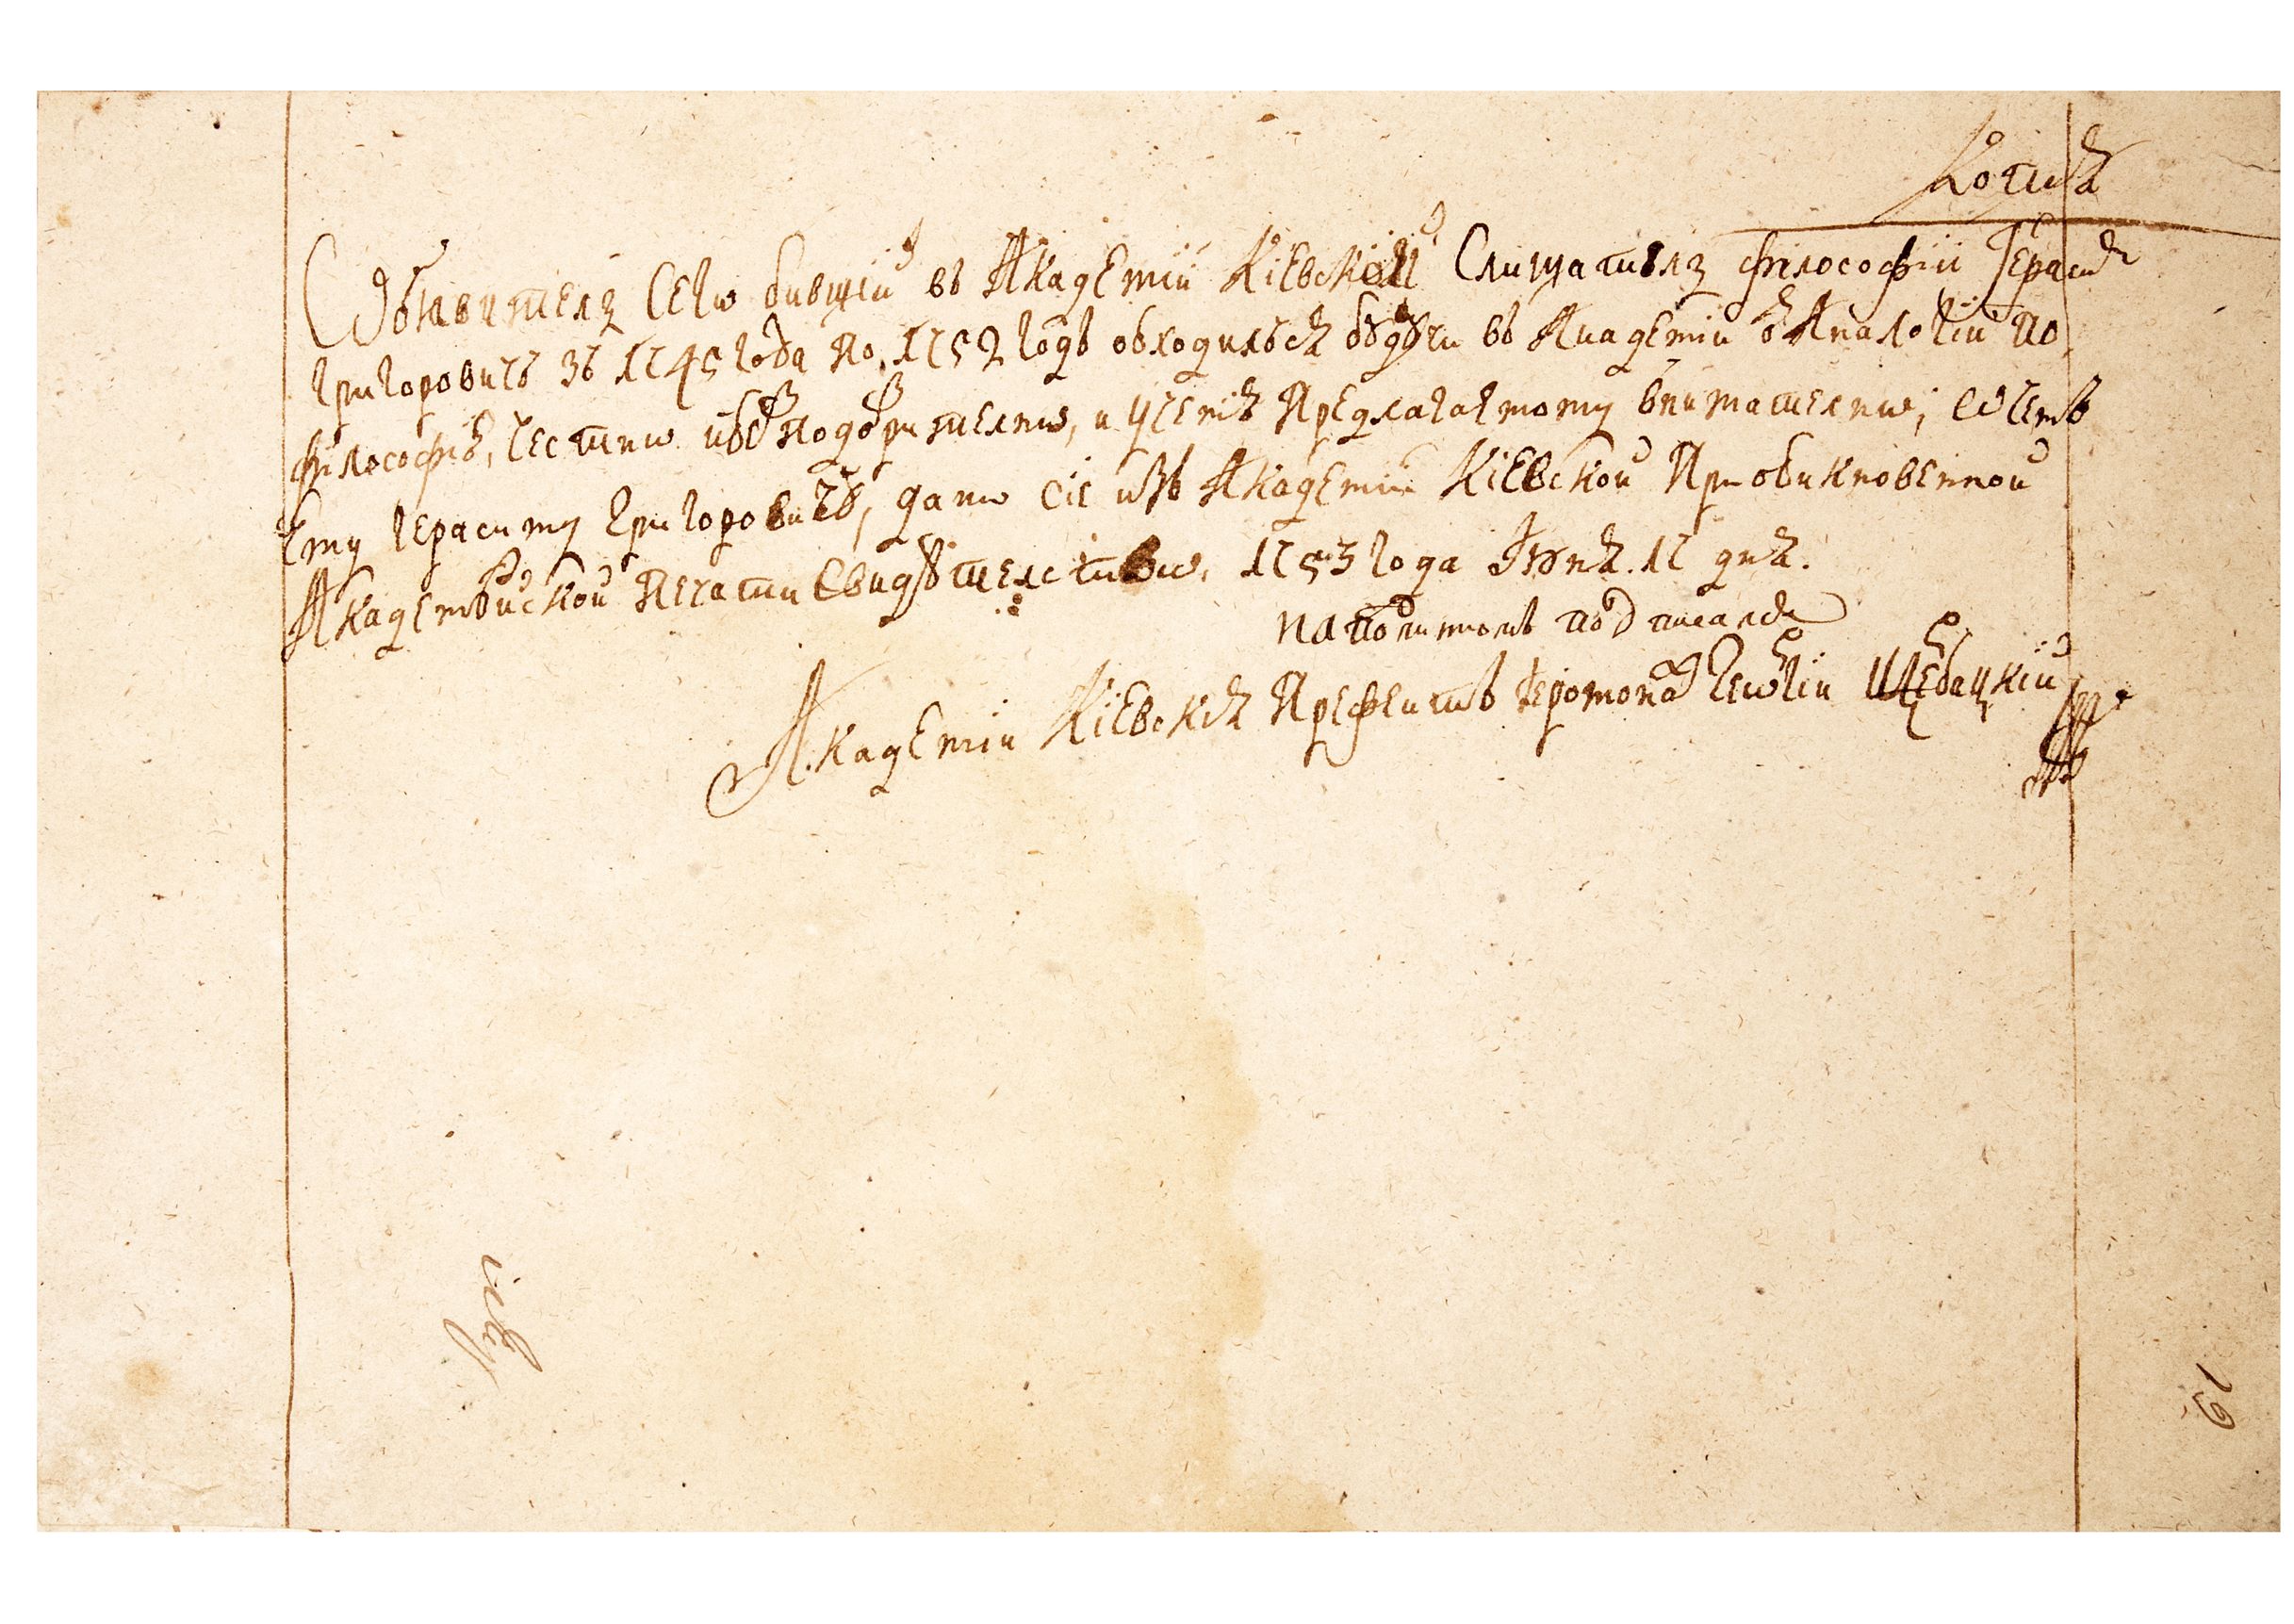 Копия
Ѡбявитель Сегѡ бившій въ Академіи Кіевской Слишатель філософіи Гераси
григоровичъ зъ 1745 года по 1752 годъ обходилься будучи въ Академіи ѿ Аналогіи по
філософію, честнѡ и безподозрителнѡ, и ученію Предлагаемому внимателнѡ; ѡ чемъ
Ему герасиму григоровичу, данѡ сіе изъ Академіи Кіевской При обикновенной
Академической Печати Свидѣтелствѡ, 1753 года Іюня 17 дня.
на подлинномъ подписался
Академіи Кіевскія Префектъ Іеромонах Геѡргій Щербацкій
19